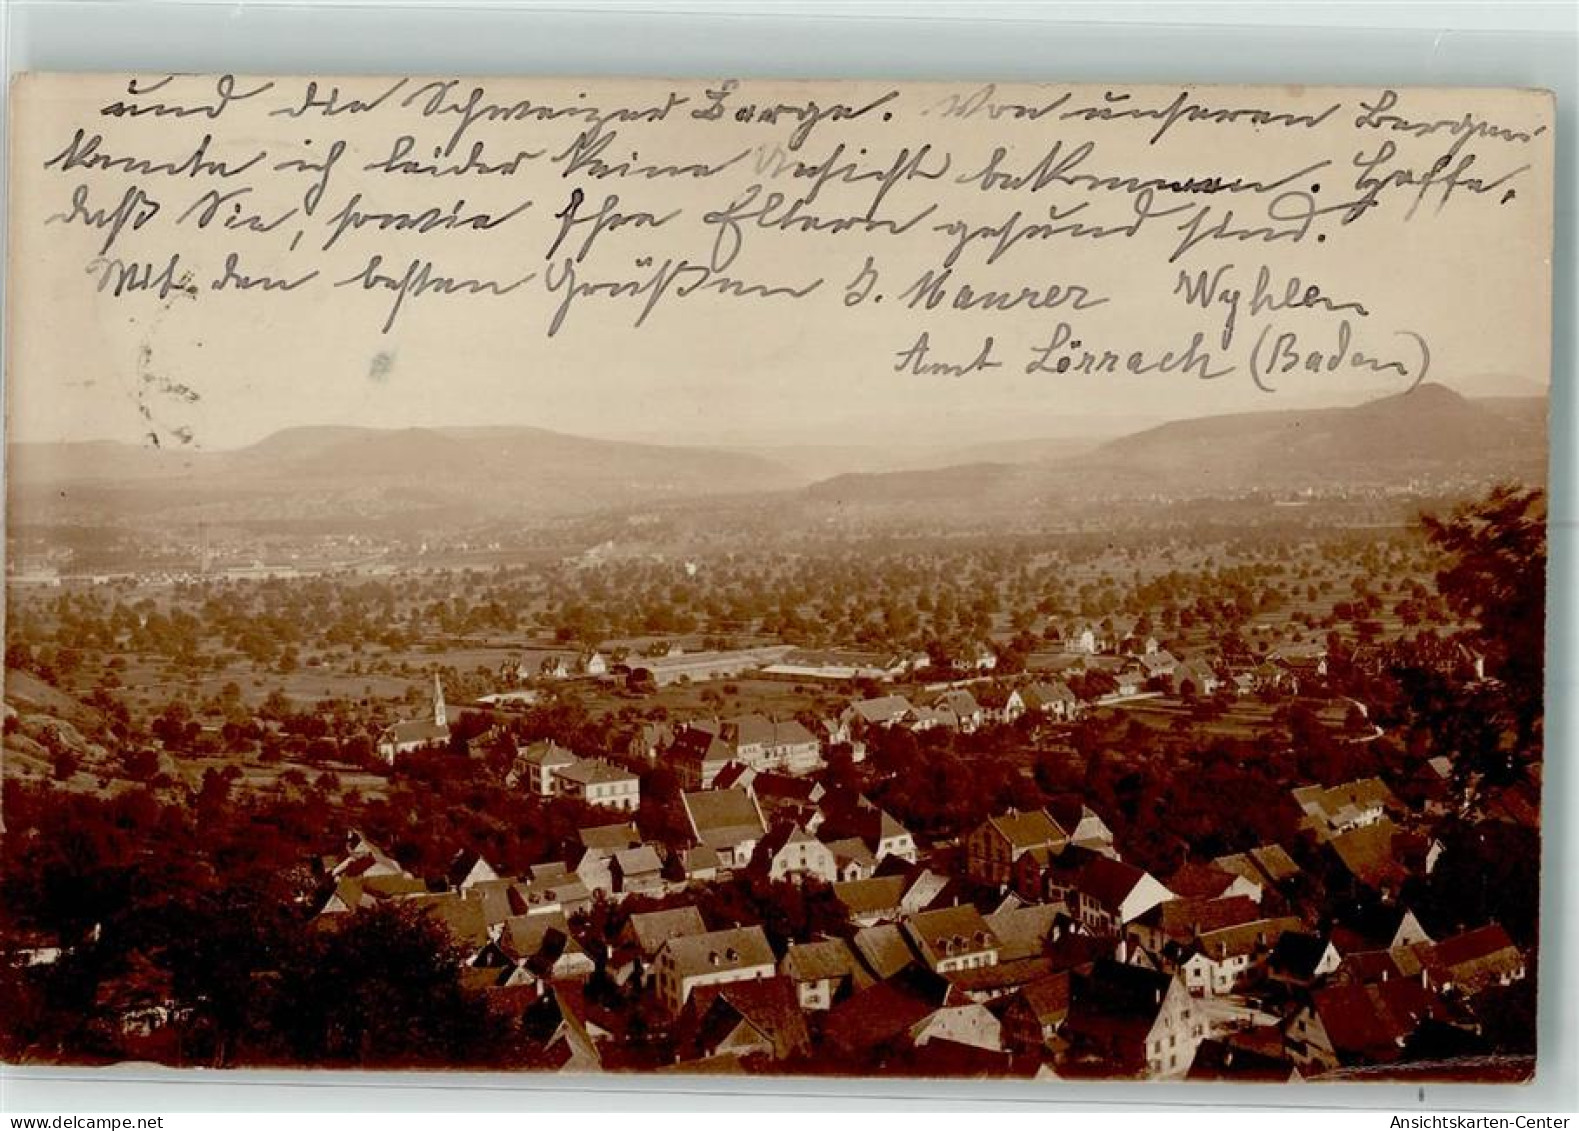 und die Schweizer Berge. Von unseren Bergen
konnte ich leider keine Ansicht bekommen. Hoffe,
daß Sie, sowie Ihre Eltern gesund sind.
Mit den besten Grüßen J. Maurer Wyhlen
Amt Lörrach (Baden)
delcampe.net
Ansichtskarten-Center